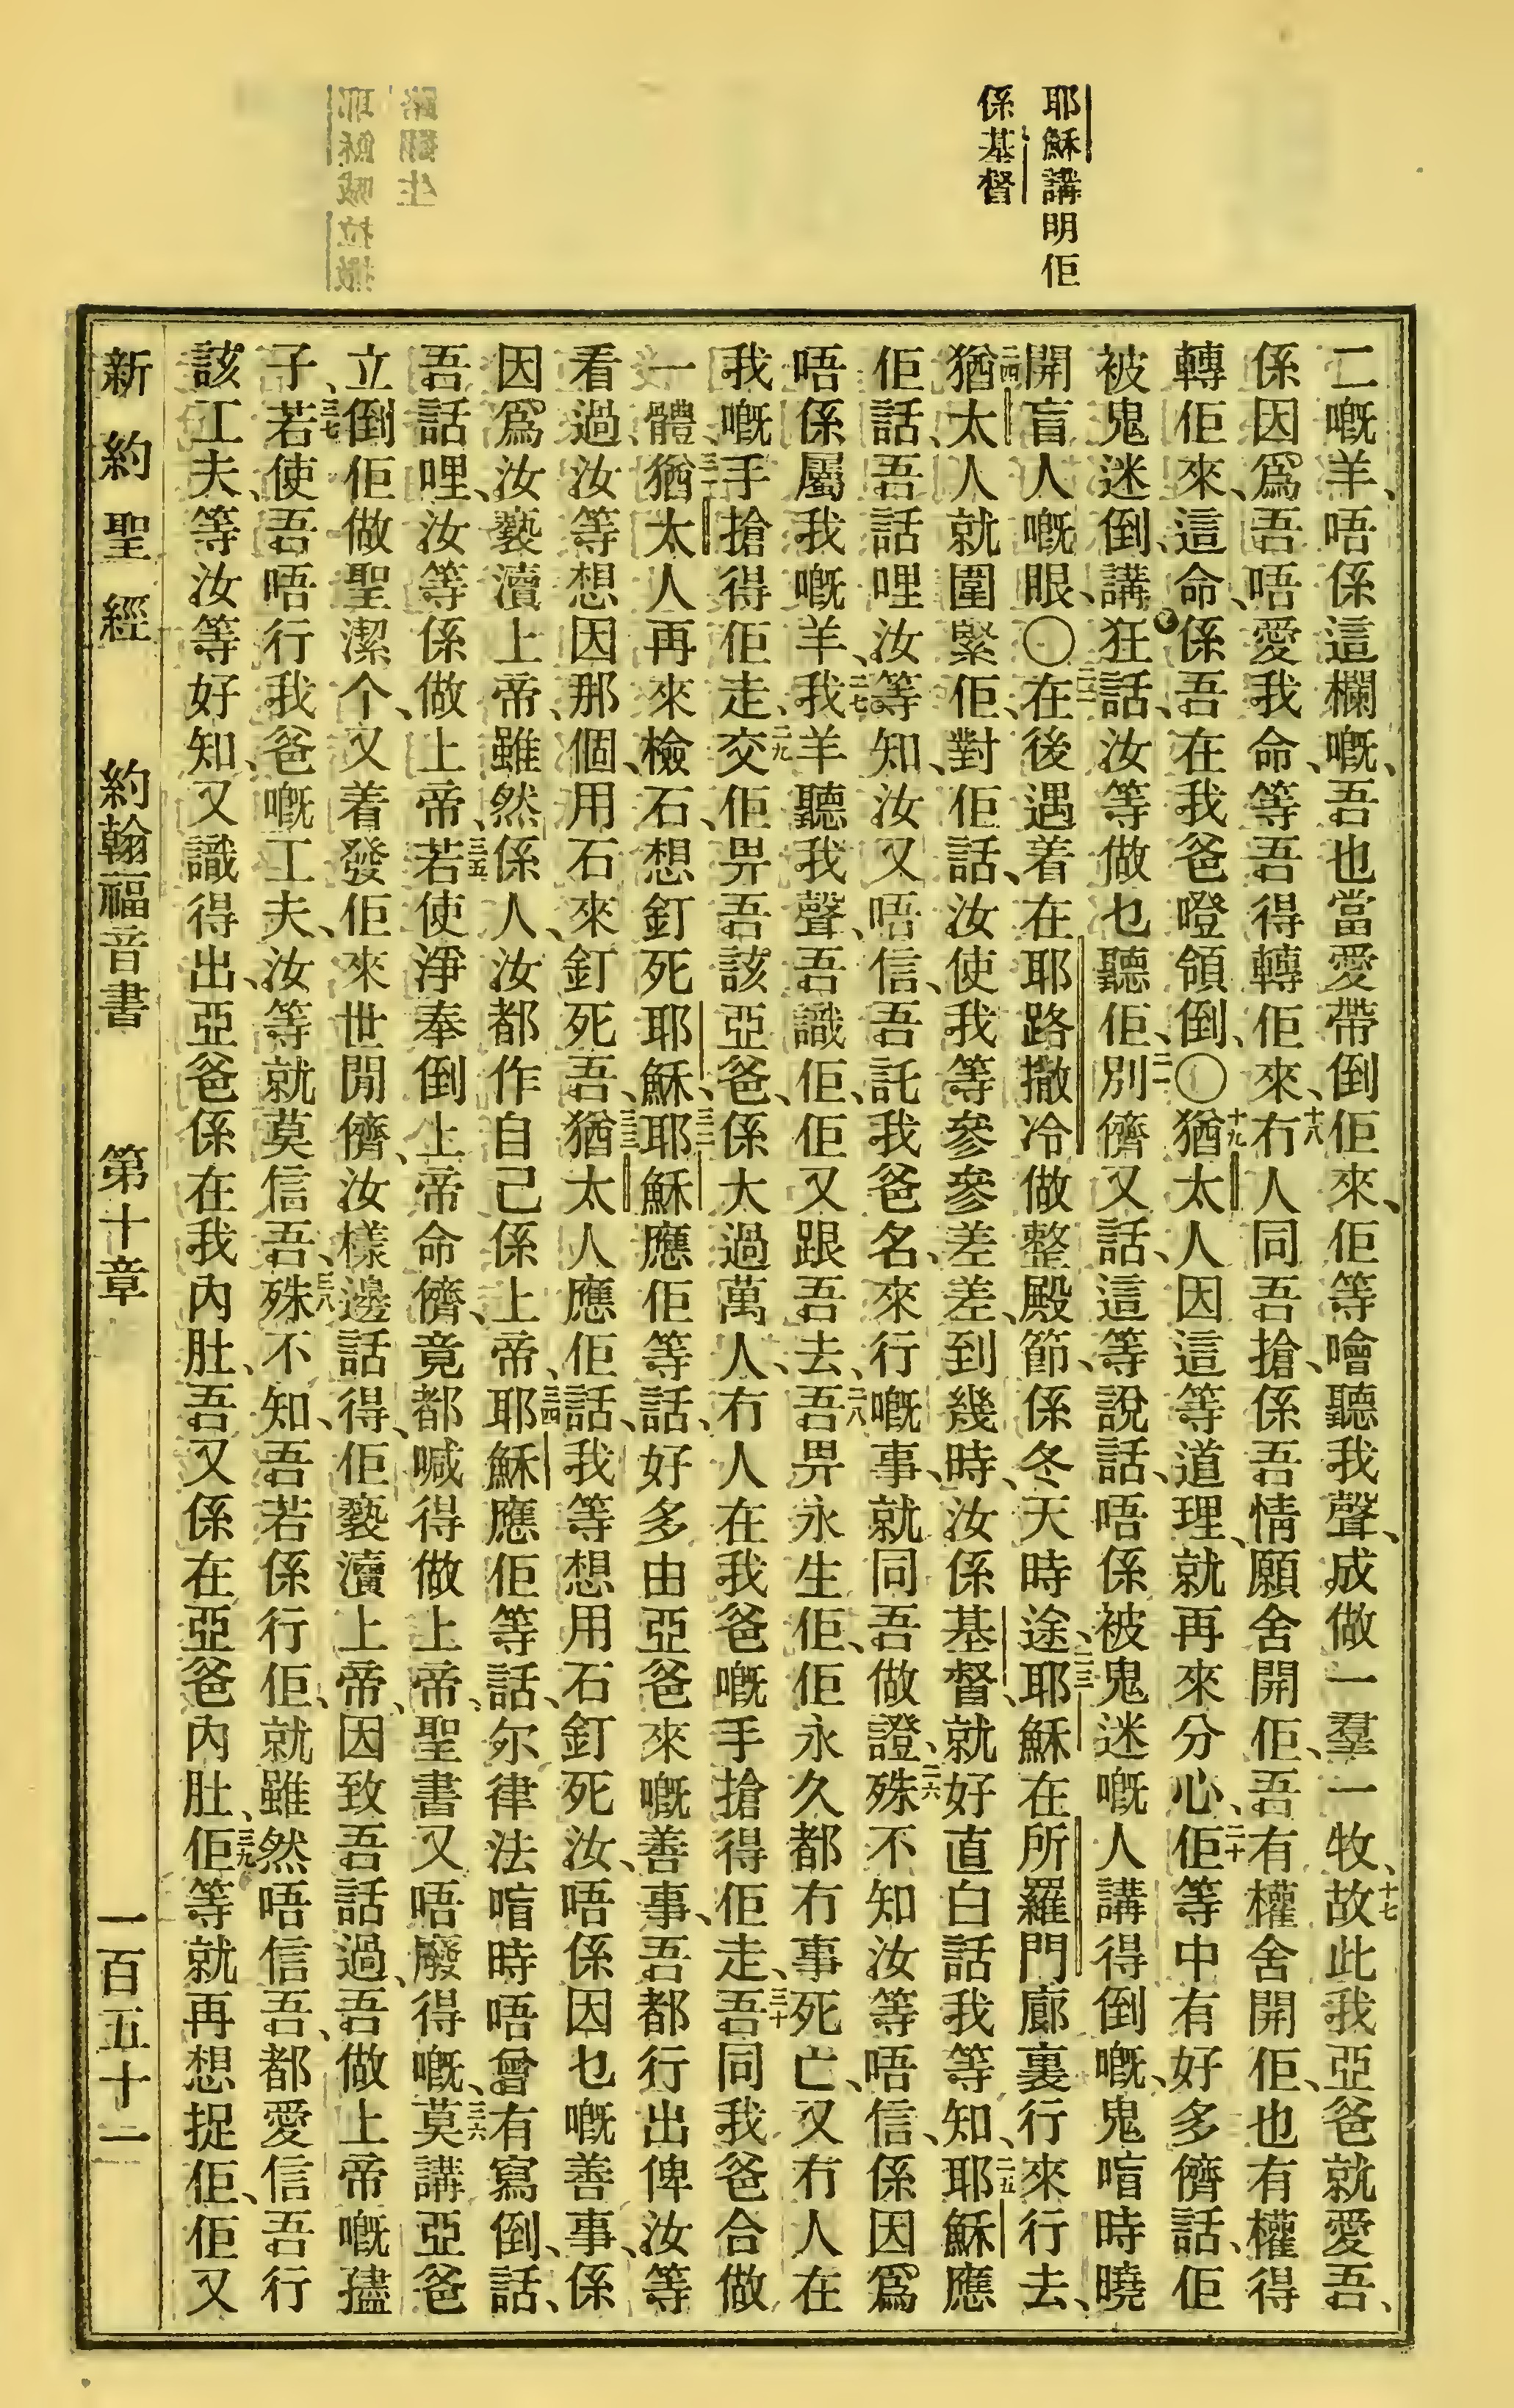 耶穌講明佢
係基督
二嘅羊、唔係這欄嘅、吾也當愛帶倒佢來、佢等噲聽我聲、成做一羣一牧、十七故此我亞爸就愛吾、
係因爲吾唔愛我命、等吾得轉佢來、十八冇人同吾搶、係吾情願舍開佢、吾有權舍開佢、也有權得
轉佢來、這命、係吾在我爸嶝領倒、〇十九猶太人因這等道理、就再來分心、二十佢等中有好多儕話、佢
被鬼迷倒、講狂話、汝等做乜聽佢、二一別儕又話、這等說話、唔係被鬼迷嘅人講得倒嘅、鬼喑時曉
開盲人嘅眼、〇二二在後遇着在耶路撒冷做整殿節、係冬天時途、二三耶穌在所羅門廊裏行來行去、
二四猶太人就圍緊佢、對佢話、汝使我等參參差差、到幾時、汝係基督、就好直白話我等知、二五耶穌應
佢話、吾話哩汝等知、汝又唔信、吾託我爸名、來行嘅事、就同吾做證、二六殊不知汝等唔信、係因爲
唔係屬我嘅羊、二七我羊聽我聲、吾識佢、佢又跟吾去、二八吾畀永生佢、佢永久都冇事死亡、又冇人在
我嘅手搶得佢走、二九交佢畀吾該亞爸、係大過萬人、冇人在我爸嘅手搶得佢走、三十吾同我爸合做
一體、三一猶太人再來檢石、想釘死耶穌、三二耶穌應佢等話、好多由亞爸來嘅善事、吾都行出俾汝等
看過、汝等想因那個、用石來釘死吾、三三猶太人應佢話、我等想用石釘死汝、唔係因乜嘅善事、係
因爲汝褻瀆上帝、雖然係人、汝都作自己係上帝、三四耶穌應佢等話、尔律法喑時唔曾有寫倒、話、
吾話哩、汝等係做上帝、三五若使淨奉倒上帝命儕、竟都喊得做上帝、聖書又唔廢得嘅、三六莫講亞爸
立倒佢做聖潔个、又着發佢來世間儕、汝樣邊話得、佢褻瀆上帝、因致吾話過、吾做上帝嘅㜽
子、三七若使吾唔行我爸嘅工夫、汝等就莫信吾、三八殊不知、吾若係行佢、就雖然唔信吾、都愛信吾行
該工夫、等汝等好知、又識得出、亞爸係在我內肚、吾又係在亞爸內肚、三九佢等就再想捉佢、佢又
新約聖經 約翰福音書 第十章 一百五十二